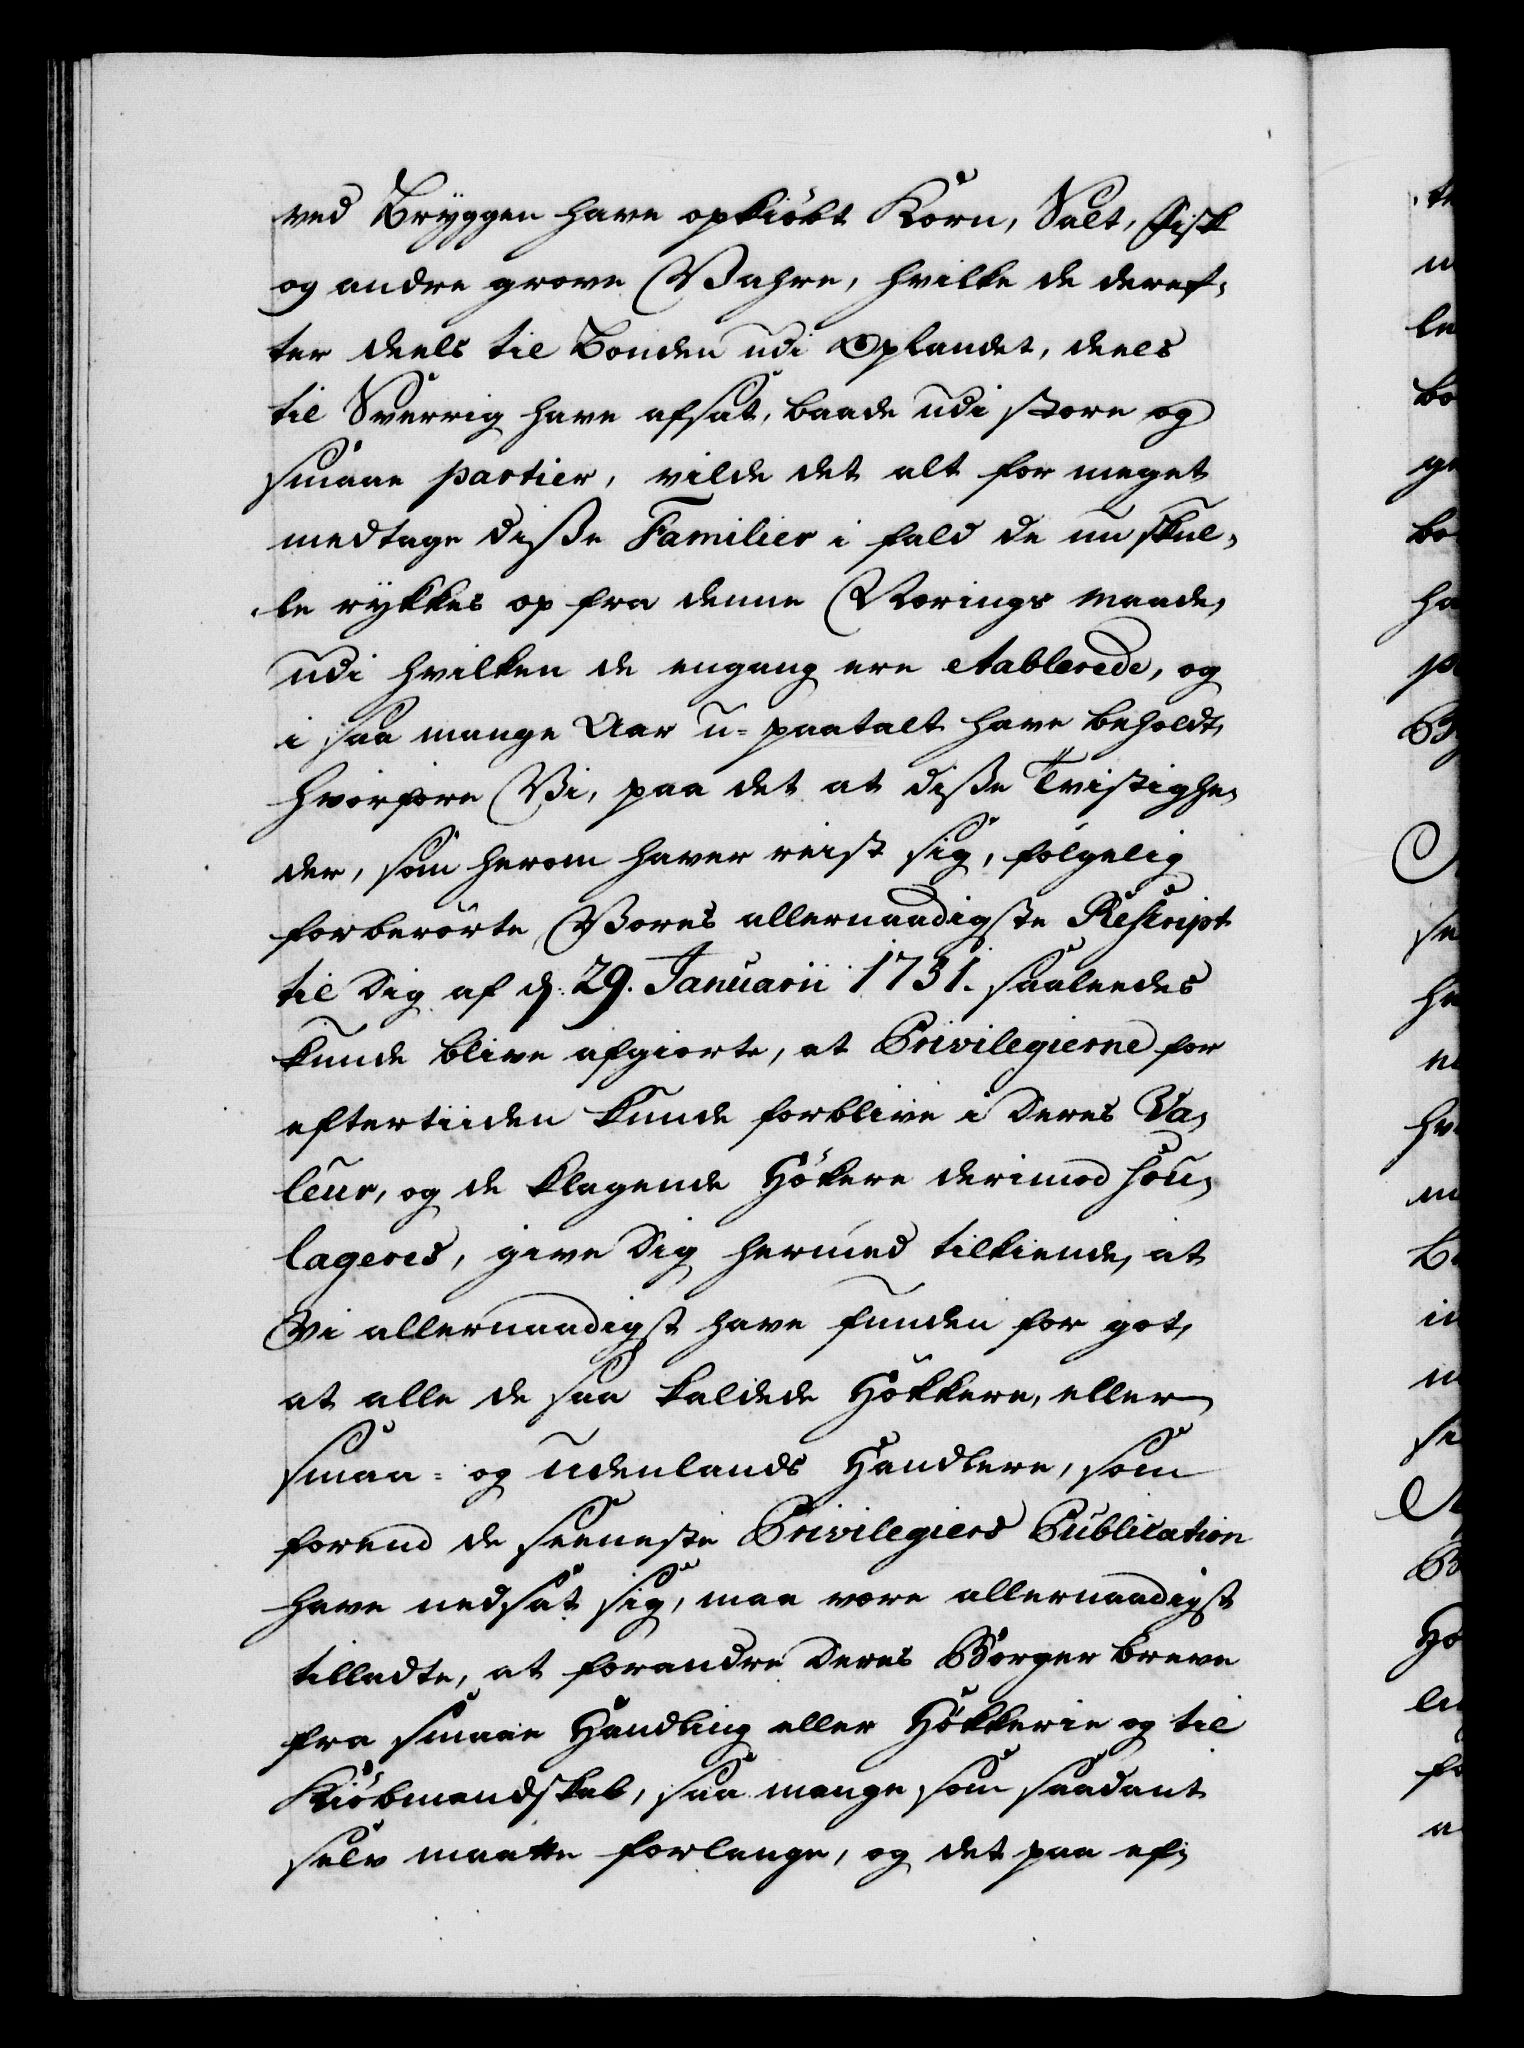 ved Bryggen have opkiöbt Korn, Salt, Fisk
og andre grove Vahre, hvilke de deref-
ter deels til Bonden udi Oplandet, deels
til Sverrig have afsat, baade udi store og
smaae partier, vilde det alt for meget
medtage disse Familier i fald de nu skul-
le rykkes op fra denne Nærings maade,
udi hvilken de engang ere etablerede, og
i saa mange Aar u-paatalt have beholdt,
hvorfore Vi, paa det at disse Tvistighe-
der, som herom haver reist sig, fölgelig
forberörte Vores allernaadigste Rescript
til Dig af d. 29. Januarii 1731. saaleedes
kunde blive afgiorte, at Privilegierne for
eftertiiden kunde forblive i deres Va-
leur, og de klagende Hökere derimod sou-
lageres, give Dig hermed tilkiende, at
Vi allernaadigst have funden for got,
at alle de saa kaldede Hökkere, eller
smaa- og udenlands Handlere, som
forend de seeneste Privilegiers Publication
have nedsat sig, maa være allernaadigst
tilladte, at forandre deres Borger breve
fra smaae Handling eller Hökkerie og til
Kiöbmandskab, saa mange som saadant
selv maatte forlange, og det paa ef-